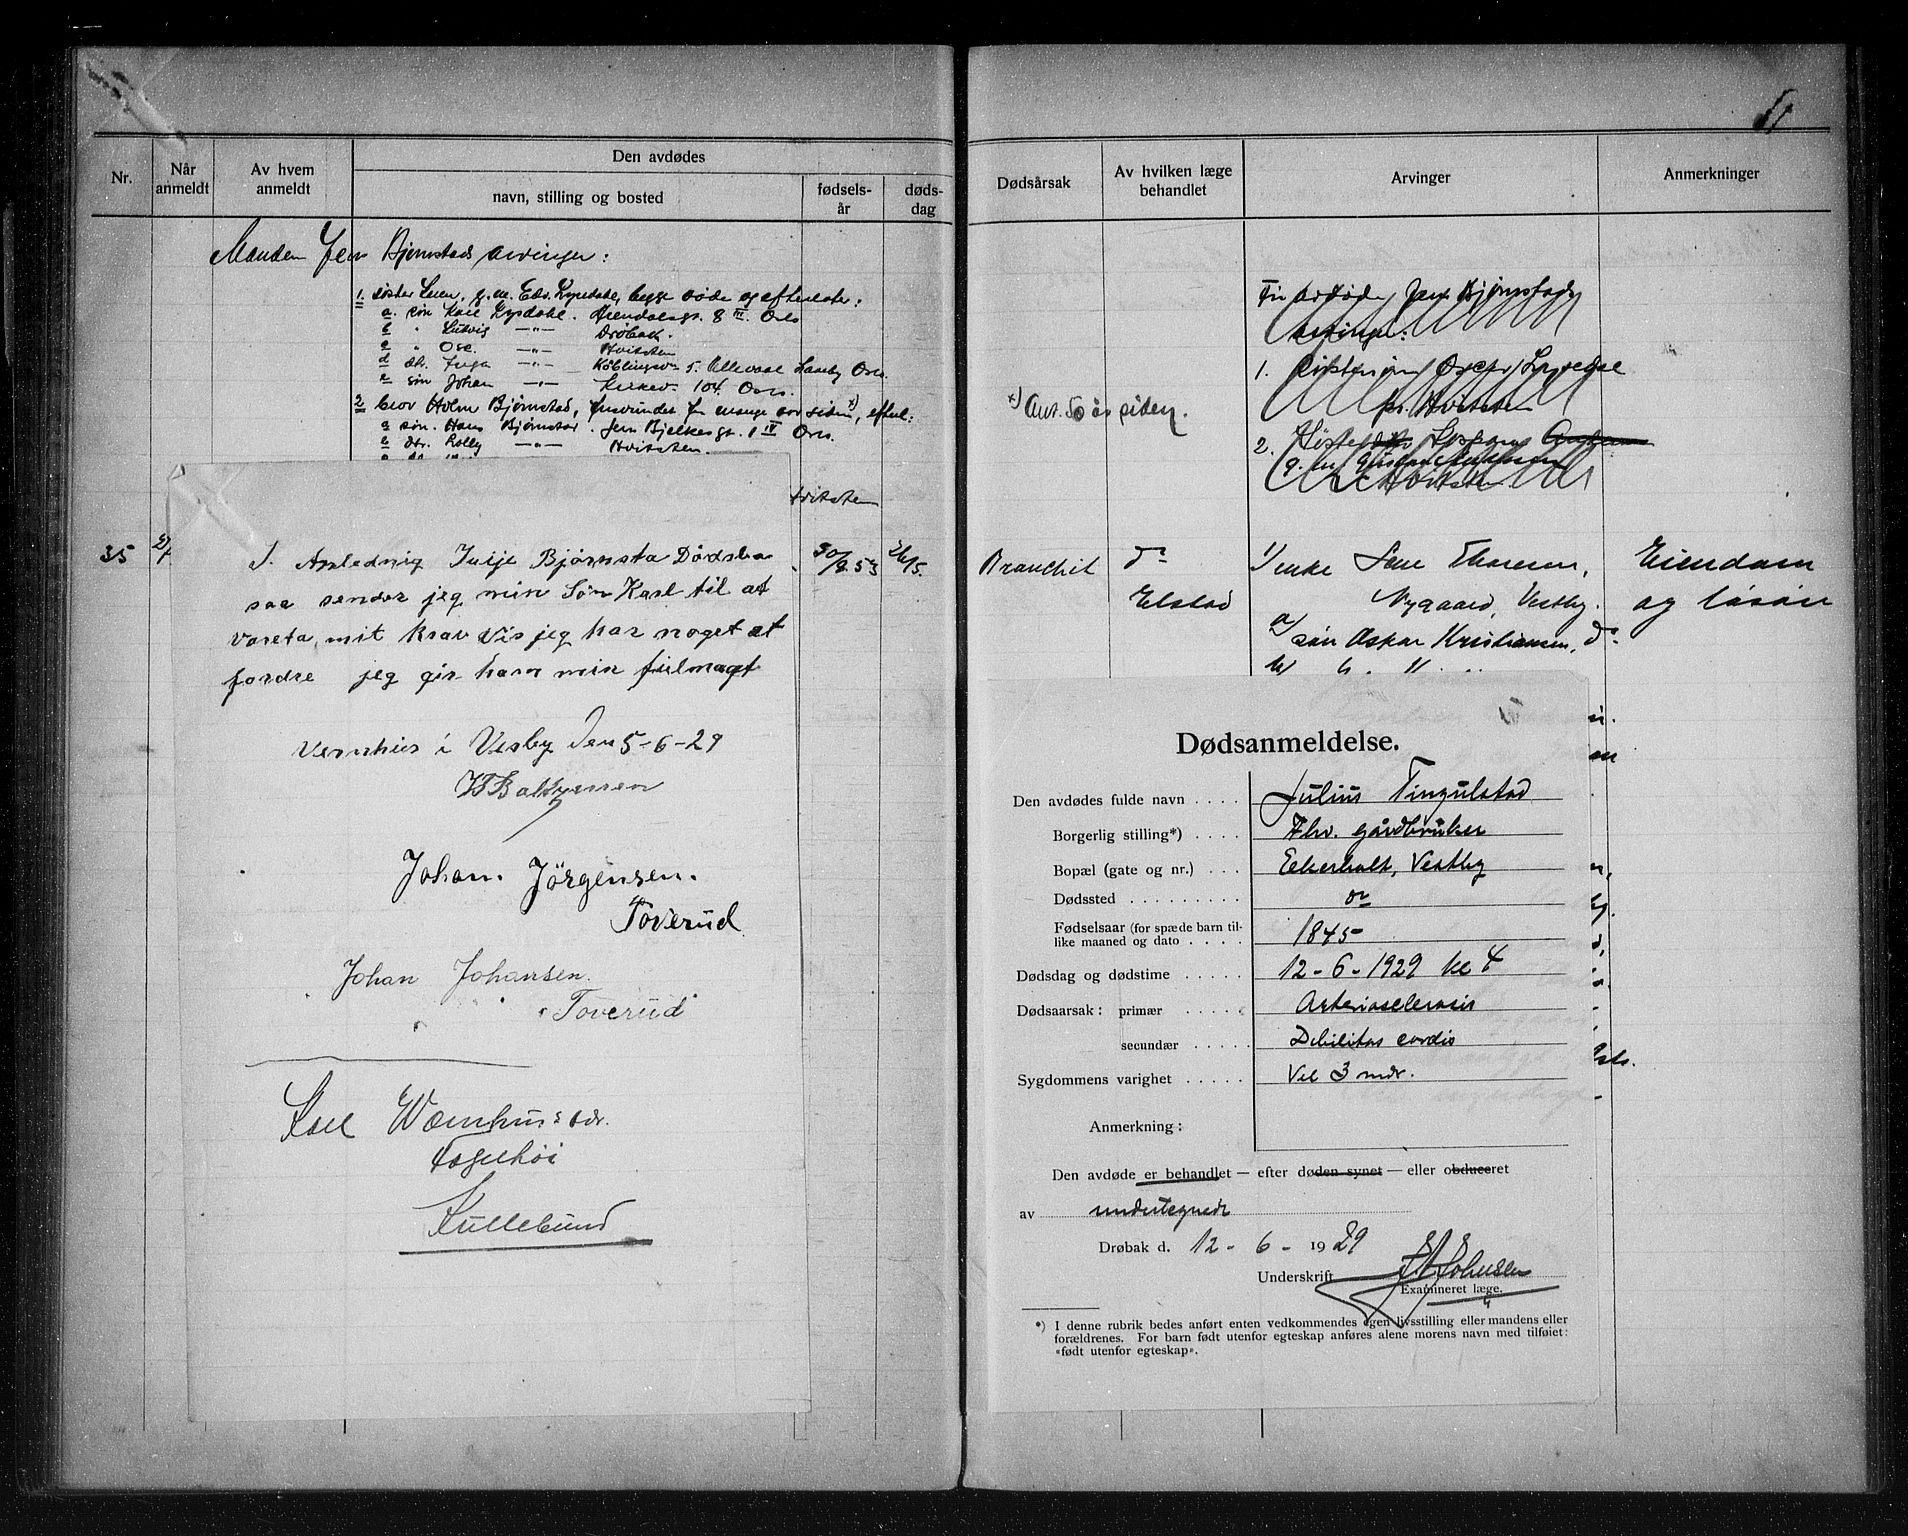 51
Nr.
Når anmeldt
Av hvem anmeldt
Den avdødes
navn, stilling og bosted
fødsels-år
døds-dag
Dødsårsak
Av hvilken læge behandlet
Arvinger
Anmerkninger
Manden Jens Bjørnstads arvinger:
1. søster Leien, g.m. Edv. Lysedahl, begge døde og efterlater:
a. søn Karl Lysdahl. Arendalsgt. 8 III Oslo
b " Ludvig —"— Drøbak.
c " Osc. —"— Hvitsten
d dtr. Inga —"— 5. Ullevaal Haveby Oslo.
e søn Johan —"— Kirkev. 104 Oslo.
2 bror Holm Bjørnstad, forsvundet for mange aar siden x), efterl:
a søn. Hans Bjørnstad. Jens Bjelkesgt. 1 IV Oslo.
b dtr. Lolly —"— Hvitsten.
Hvitsten
x) Ant. 50 år siden.
Fru avdøde Jens Bjørnstads
arvinger:
1. Søstersøn Oscar Lysedal
pr. Hvitsten
2.
Hvitsten
35
30/8.53
24/5.
Bronchit
do
Elstad
1/ enke Lene Thoresen,
Nygaard, Vestby.
a/ søn Oskar Kristiansen, do
b/
Eiendom
og løsøre
I. Anledning Julje Bjørnsta Dødsbo
saa sender jeg min Søn Karl til at
vareta mit krav Vis jeg har noget at
fordre jeg gir ham min fulmagt
Vernhus i Vesby Den 5-6-29
Johan. Jörgensen.
Toverud
Johan Johansen.
Toverud
Karl Wernhus
Fagerhöi
Hullebund
Dødsanmeldelse.
Den avdødes fulde navn . . . . Julius Tingulstad
Borgerlig stilling*) . . . . Fhv. gårdbruker
Bopæl (gate og nr.) . . . Eekerholt, Vestby
Dødssted . . . . . . . . . do
Fødselsaar (for spæde barn til-
like maaned og dato . . . . 1845
Dødsdag og dødstime . . . . . 12-6-1929 kl 4
Dødsaarsak: primær . . . . . Arteriosclerosis
secundær . . . . . Debilitas cordis
Sygdommens varighet . . . . . Vel 3 mdr.
Anmerkning:
Den avdøde er behandlet — efter døden synet — eller obduceret
av undertegnede
Drøbak d. 12 - 6 - 1929
Underskrift Johnsen
Examineret læge.
*) I denne rubrik bedes anført enten vedkommendes egen livsstilling eller mandens eller
forældrenes. For barn født utenfor egteskap anføres alene morens navn med tilføiet:
«født utenfor egteskap».